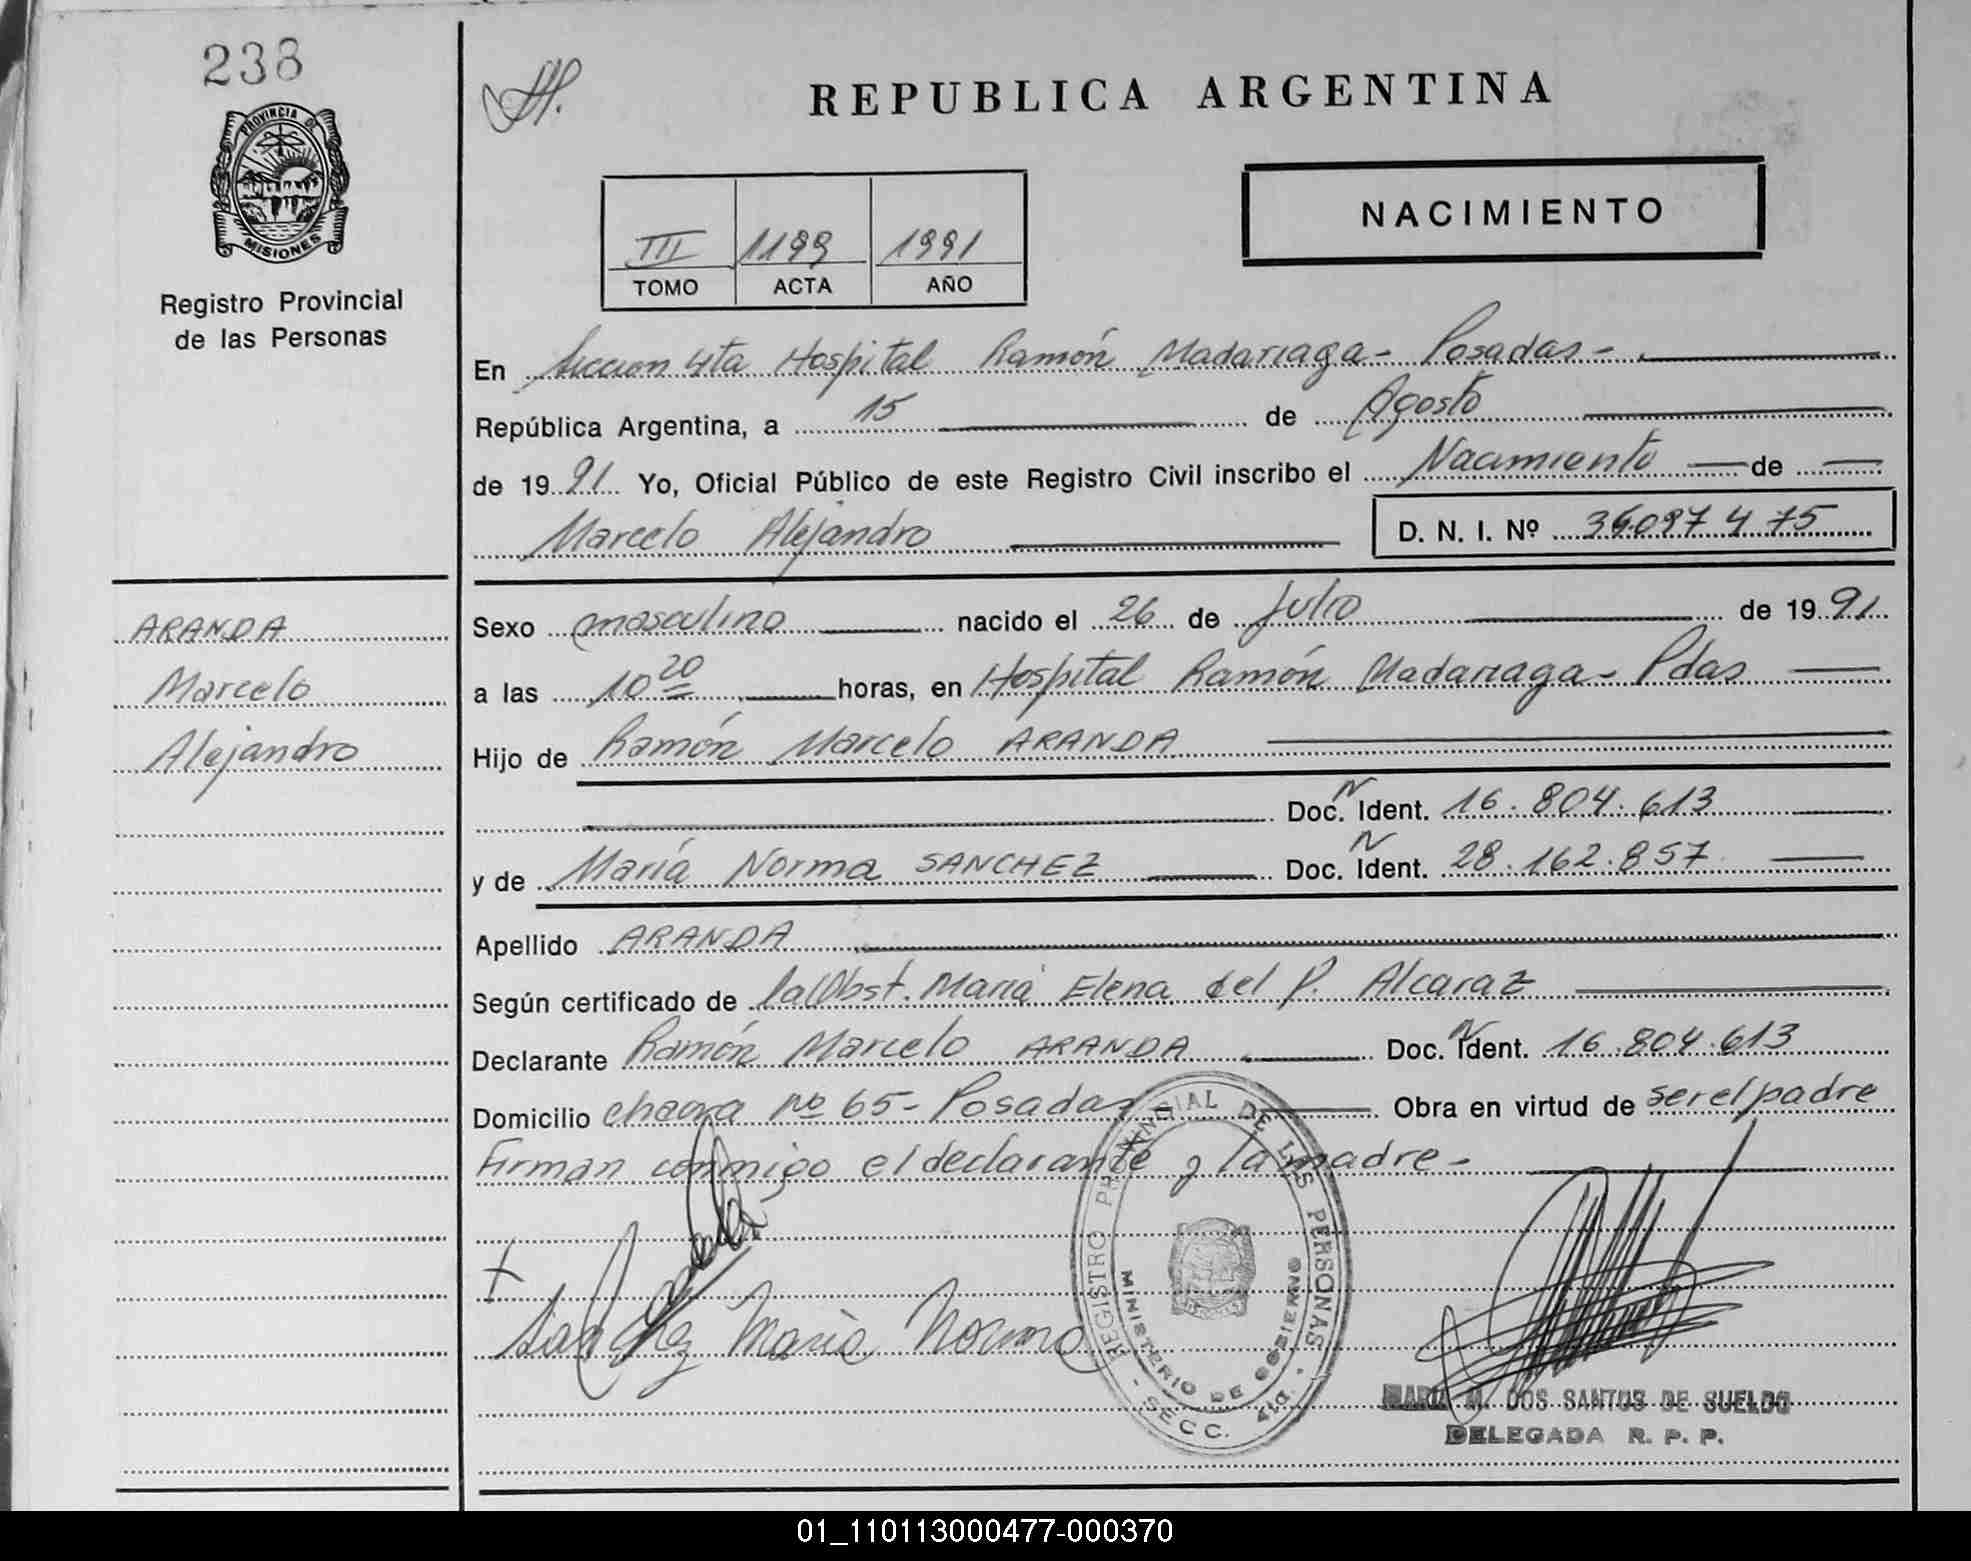 238
PROVINCIA DE
MISIONES
Registro Provincial
de las Personas
ARANDA
Marcelo
Alejandro
REPUBLICA ARGENTINA
NACIMIENTO
III 1199 1991
TOMO ACTA AÑO
En Seccion 4ta Hospital Ramón Madariaga - Posadas -
República Argentina, a 15 de Agosto
de 1991 Yo, Oficial Público de este Registro Civil inscribo el Nacimiento de
Marcelo Alejandro D. N. I. Nº 36.097 4 75
Sexo masculino nacido el 26 de Julio de 1991
a las 10 20 horas, en Hospital Ramón Madariaga - Pdas
Hijo de Ramón Marcelo ARANDA
Doc. N Ident. 16.804.613
y de María Norma SANCHEZ Doc. N Ident. 28.162.857
Apellido ARANDA
Según certificado de la Obst. María Elena del P. Alcaraz
Declarante Ramón Marcelo ARANDA Doc. N Ident. 16.804.613
Domicilio chacra nº 65 - Posadas Obra en virtud de ser el padre
Firman conmigo el declarante y la madre -
Sanchez Maria Norma
REGISTRO PROVINCIAL DE LAS PERSONAS
MINISTERIO DE GOBIERNO
- SECC. 4ta. -
M. DOS SANTOS DE SUELDO
DELEGADA R. P. P.
01_110113000477-000370